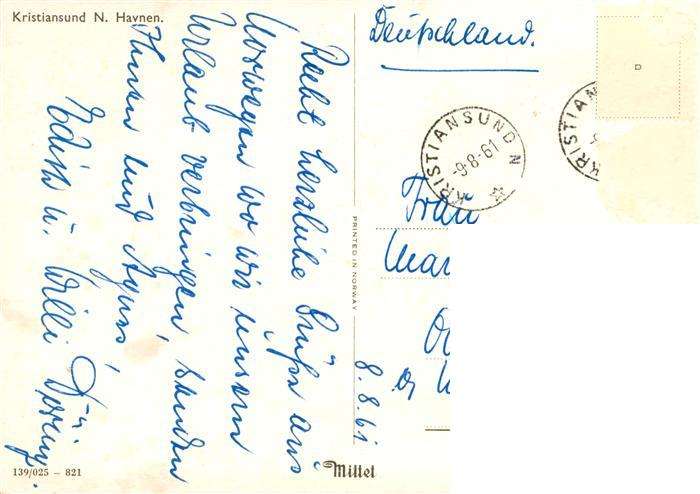 Kristiansund N. Havnen.
Recht herzliche Grüße aus
Norwegen wo wir unsern
Urlaub verbringen, senden
Ihnen und Agnes
Edith u. Willi Döring.
139/025 - 821
PRINTED IN NORWAY
Mittet
8.8.61
Deutschland.
D
KRISTIANSUND N
-9-8-61
KRISTIAN
Frau
Mar